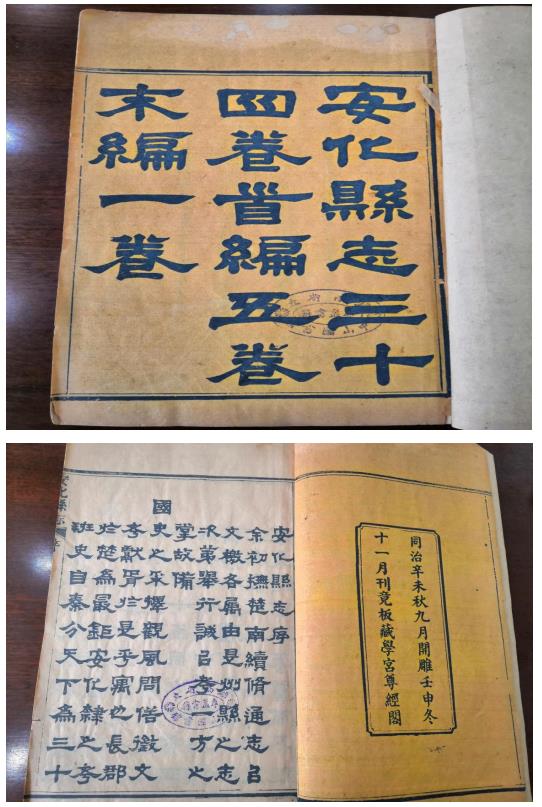 安化縣志三十
四卷首編五卷
末編一卷
同治辛未秋九月開雕壬申冬
十一月刊竟板藏學宮尊經閣
安化縣志序
余初撫楚南續脩通志㠯
文檄各屬由是州縣之志
次第舉行誠㠯考方之
掌故備
國史之采擇觀風問俗徵文
考獻胥於是乎寓也長郡
於楚為最鉅安化隸之考
班史自秦分天下為三十
安化縣志